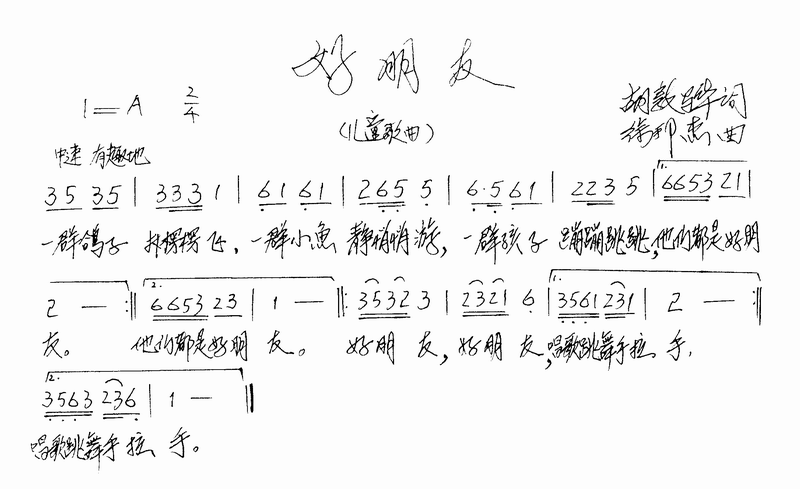 好朋友
1=A 2/4
(儿童歌曲)
胡敦骅词
徐邦杰曲
中速 有趣地
35 35 | 333 1 | 61 61 | 265 5 | 6·5 61 | 223 5 | 1. 6653 21 |
一群鸽子 扑楞楞飞,一群小鱼 静悄悄游,一群孩子 蹦蹦跳跳,他们都是好朋
2 — :|| 2. 6653 23 | 1 — ||: 3532 3 | 2321 6 | 1. 3561 231 | 2 — :||
友。 他们都是好朋 友。 好朋 友,好朋 友,唱歌跳舞手拉 手,
2. 3563 236 | 1 — ||
唱歌跳舞手 拉 手。